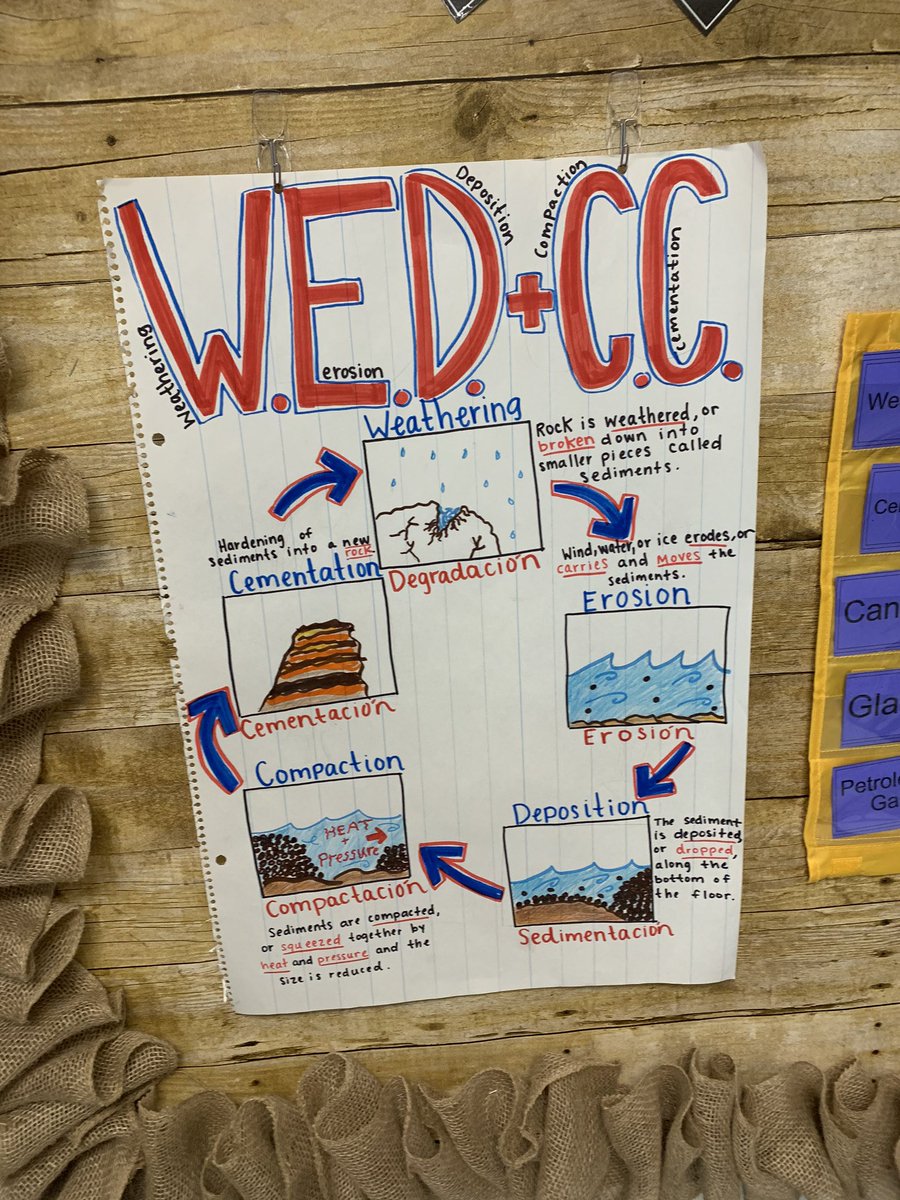 W.E.D.+C.C.
Weathering
erosion
Deposition
Compaction
cementation
Weathering
Rock is weathered, or
broken down into
smaller pieces called
sediments.
Degradación
Wind, water, or ice erodes, or
carries and moves the
sediments.
Erosion
Erosión
Deposition
The sediment
is deposited,
or dropped,
along the
bottom of
the floor.
Sedimentación
Compaction
HEAT
+
Pressure
Compactación
Sediments are compacted,
or squeezed together by
heat and pressure and the
size is reduced.
Hardening of
sediments into a new
rock
Cementation
Cementación
We
Ce
Can
Gla
Petrole
Ga